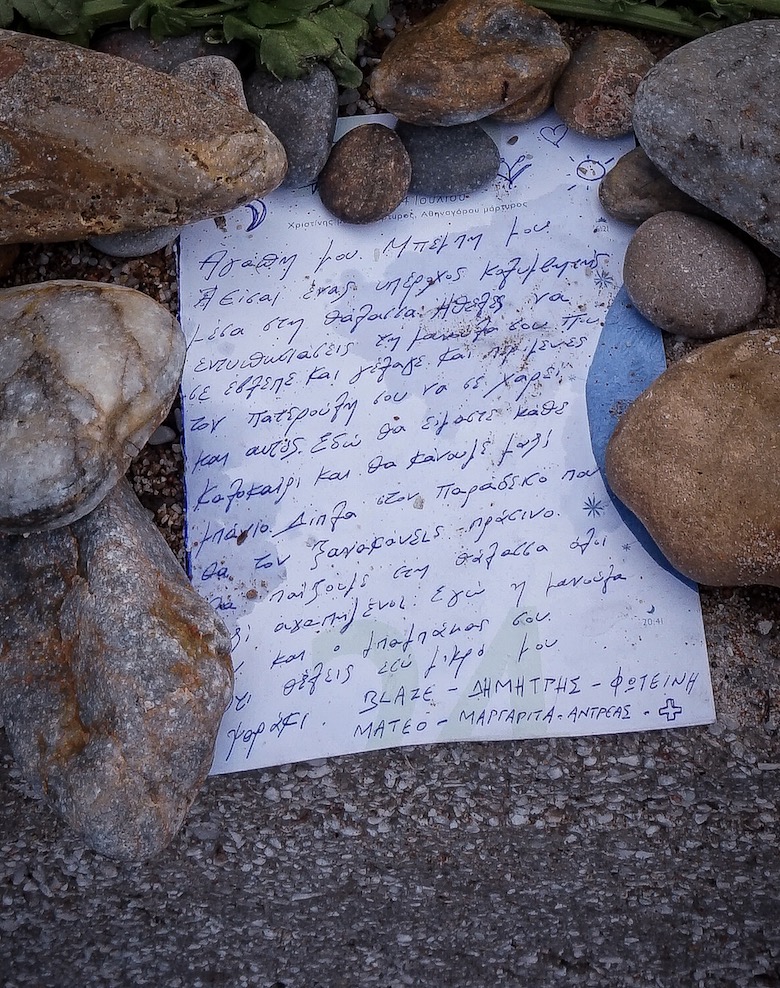 4 Ιουλίου
Χριστίνης μάρτυρος, Αθηναγόρου μάρτυρος
Αγάπη μου. Μπέμπη μου
Είσαι ένας υπέροχος κολυμβητής
μέσα στη θάλασσα. Ήθελες να
εντυπωσιάσεις τη μανούλα σου που
σε έβλεπε και γέλαγε και
τον πατερούλη σου να σε χαρεί
και αυτός. Εδώ θα είμαστε κάθε
καλοκαίρι και θα κάνουμε μαζί
μπάνιο. Δίπλα στον παράδεισο που
θα τον ξανακάνεις πράσινο.
θα παίξουμε στη θάλασσα όλοι
αγαπημένοι. Εγώ η μανούλα
και ο μπαμπάκας σου.
θέλεις εσύ μικρό μου
ψαράκι.
BLAZE - ΔΗΜΗΤΡΗΣ - ΦΩΤΕΙΝΗ
ΜΑΤΕΟ - ΜΑΡΓΑΡΙΤΑ - ΑΝΤΡΕΑΣ -
20:41